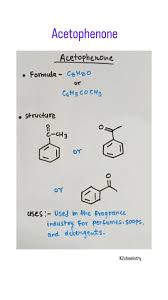 Acetophenone
Acetophenone
• Formula - C8H8O
or
C6H5COCH3
• Structure
O
C-CH3
O
or
O
or
Uses :- Used in the fragrance
industry for perfumes, soaps,
and detergents.
K2chemistry